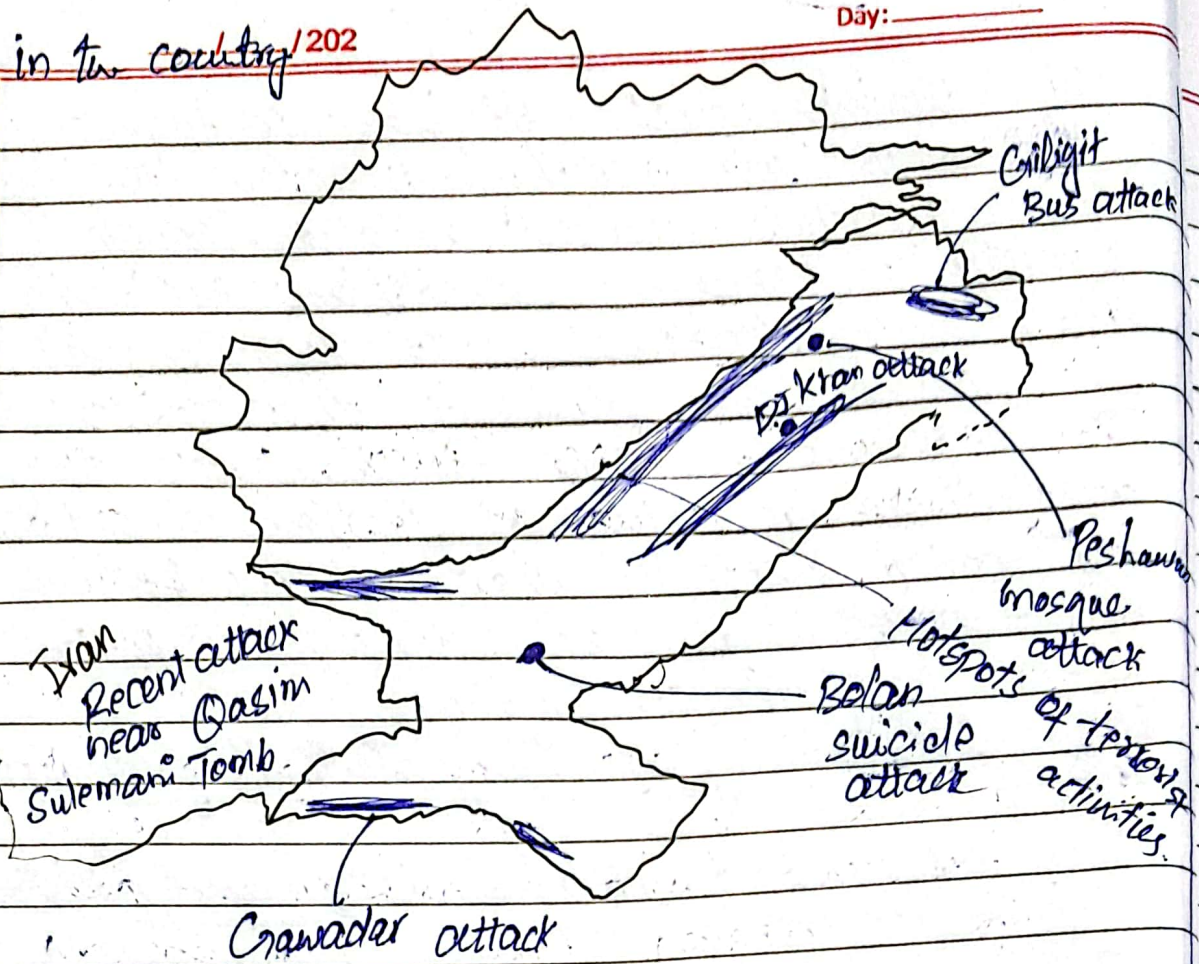 Day:
in the country /202
Giligit
Bus attack
D.I. Khan attack
Peshawar
mosque
attack
Hotspots of terrorist
activities.
Bolan
suicide
attack
Iran
Recent attack
near Qasim
Sulemani Tomb.
Gawadar attack